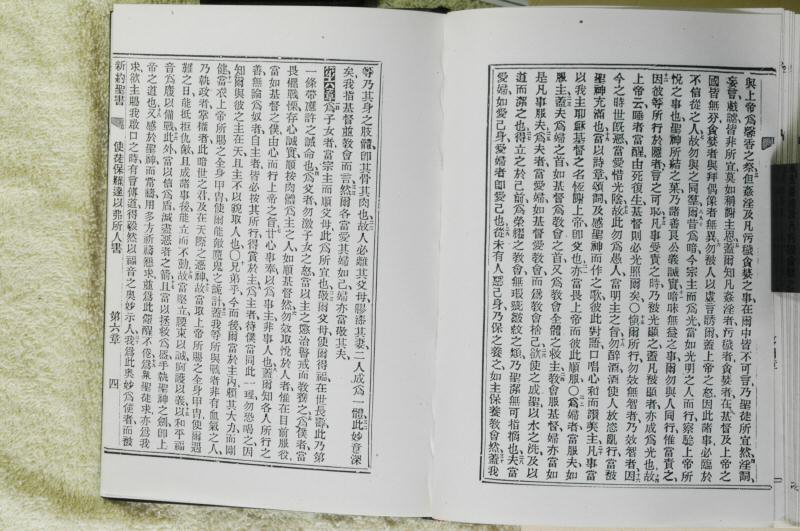 與上帝爲馨香之祭但姦淫及凡汚穢貪婪之事在爾中皆不可言乃聖徒所宜然淫詞
妄言戲謔皆非所宜莫如稱謝主恩蓋爾知凡姦淫者汚穢者貪婪者在基督及上帝之
國皆無分貪婪者與拜偶像者無異勿被人以虛言誘爾蓋上帝之怒因此諸事必臨於
不信從之人故勿與之同羣爾昔爲暗今宗主而爲光當如光明之人而行察驗上帝所
悅之事也聖神所結之菓乃諸善良公義誠實暗昧無益之事爾勿與人同行惟當責之
因彼等所行於隱者言之可恥凡事受責之時乃被光顯之蓋凡被顯者亦成爲光也故
上帝云睡者當醒由死復生基督則必光照爾矣○愼爾所行勿效無智者乃效智者因
今之時世旣惡當愛惜光陰故此勿爲愚人當明主之旨勿醉酒酒使人放恣亂行當被
聖神充滿也當以詩章頌詞及感聖神而作之歌彼此對語口唱心和而讚美主凡事當
以我主耶穌基督之名恆謝上帝卽父也亦當畏上帝而彼此順服○爲婦者當服夫如
服主蓋夫爲婦之首如基督爲教會之首又爲教會全體之救主教會服基督婦亦當如
是凡事服夫爲夫者當愛婦如基督愛教會而爲教會捨己欲使之成聖以水之洗及以
道而潔之也得立之於己前爲榮耀之教會無瑕疵皺紋之類乃聖潔無可指摘也夫當
愛婦如愛己身愛婦者卽愛己也從未有人惡己身乃保之養之如主保養教會然蓋我
等乃其身之肢體卽其骨其肉也故人必離其父母膠漆其妻二人成爲一體此妙意深
矣我指基督並教會而言然爾各當愛其婦如己婦亦當敬其夫
第六章爲子女者當宗主而順父母此爲所宜也敬爾父母使爾得福在世長壽此乃第
一條帶應許之誡命也爲父者勿激子女之怒當以主之懲治警戒而教養之爲僕者當
畏懼戰慄存心誠實順按肉體爲主之人如順基督然勿效取悅於人者惟在目前服役
當如基督之僕由心而行上帝之旨甘心事奉以爲事主非事人也蓋爾知各人所行之
善無論爲奴者自主者皆必按其所行得賞於主爲主者待僕當同此一理勿恐喝之因
知爾與彼之主在天且主不以貌取人也○兄弟乎今而後爾當於主內賴其大力而剛
健當衣上帝所賜之全身甲冑使爾能敵魔鬼之詭計蓋我等所與戰者非有血氣之人
乃執政者掌權者此暗世之君及在天際之惡神故當取上帝所賜之全身甲冑使爾遇
難之日能抵拒仇敵且成諸事後能立而不動故當堅立腰束以誠胸護以義以和平福
音爲履以備戰此外當以信爲盾滅盡惡者之箭且當以拯救爲盔手執聖神之劍卽上
帝之道也又感於聖神而常禱用多方祈禱懇求並爲此儆醒不倦爲衆聖徒求亦爲我
求欲主賜我啟口之時有言傳道得毅然以福音之奧妙示人我爲此奧妙爲使者而被
新約聖書 使徒保羅達以弗所人書 第六章 四